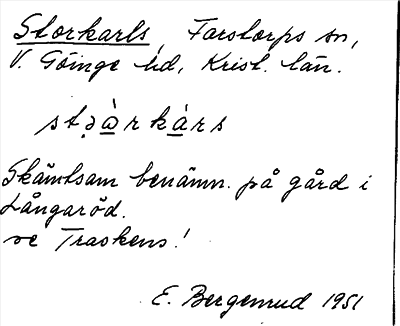 Storkarls, Farstorps sn,
V. Göinge hd, Krist. län.
stə̯ὰrkàrs
Skämtsam benämn. på gård i
Långaröd.
se Traskens!
E. Bergenrud 1951